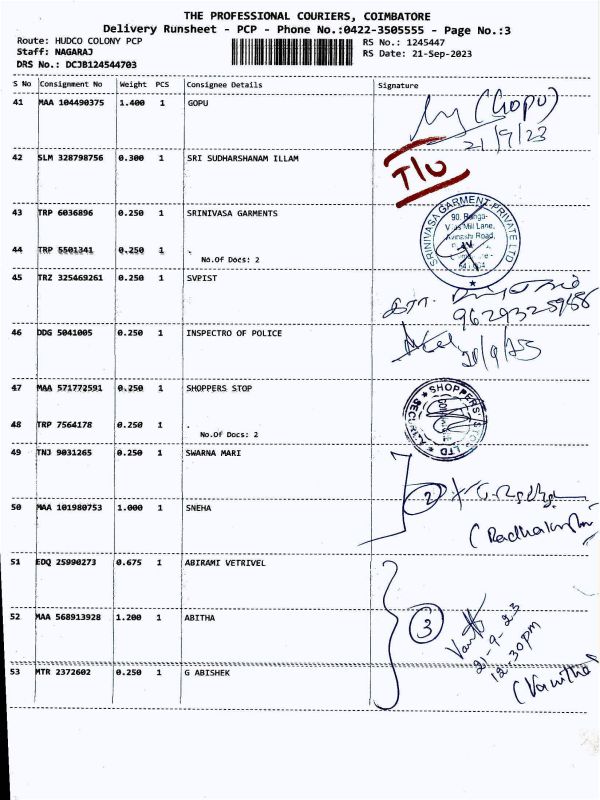 THE PROFESSIONAL COURIERS, COIMBATORE
Delivery Runsheet - PCP - Phone No.:0422-3505555 - Page No.:3
Route: HUDCO COLONY PCP RS No.: 1245447
Staff: NAGARAJ RS Date: 21-Sep-2023
DRS No.: DCJB124544703
S No Consignment No Weight PCS Consignee Details Signature
41 MAA 104490375 1.400 1 GOPU
(Gopu)
21/9/23
42 SLM 328798756 0.300 1 SRI SUDHARSHANAM ILLAM
T/U
43 TRP 6036896 0.250 1 SRINIVASA GARMENTS
SRINIVASA GARMENT PRIVATE LTD
90, Ranga-
Vilas Mill Lane,
Avinashi Road,
44 TRP 5501341 0.250 1 .
No.Of Docs: 2
45 TRZ 325469261 0.250 1 SVPIST
46 DDG 5041005 0.250 1 INSPECTRO OF POLICE
47 MAA 571772591 0.250 1 SHOPPERS STOP
SHOPPERS
48 TRP 7564178 0.250 1 .
No.Of Docs: 2
49 TNJ 9031265 0.250 1 SWARNA MARI
2
50 MAA 101980753 1.000 1 SNEHA
51 EDQ 25990273 0.675 1 ABIRAMI VETRIVEL
52 MAA 568913928 1.200 1 ABITHA
3
21-9-23
12-30pm
53 MTR 2372602 0.250 1 G ABISHEK
(Vanitha)